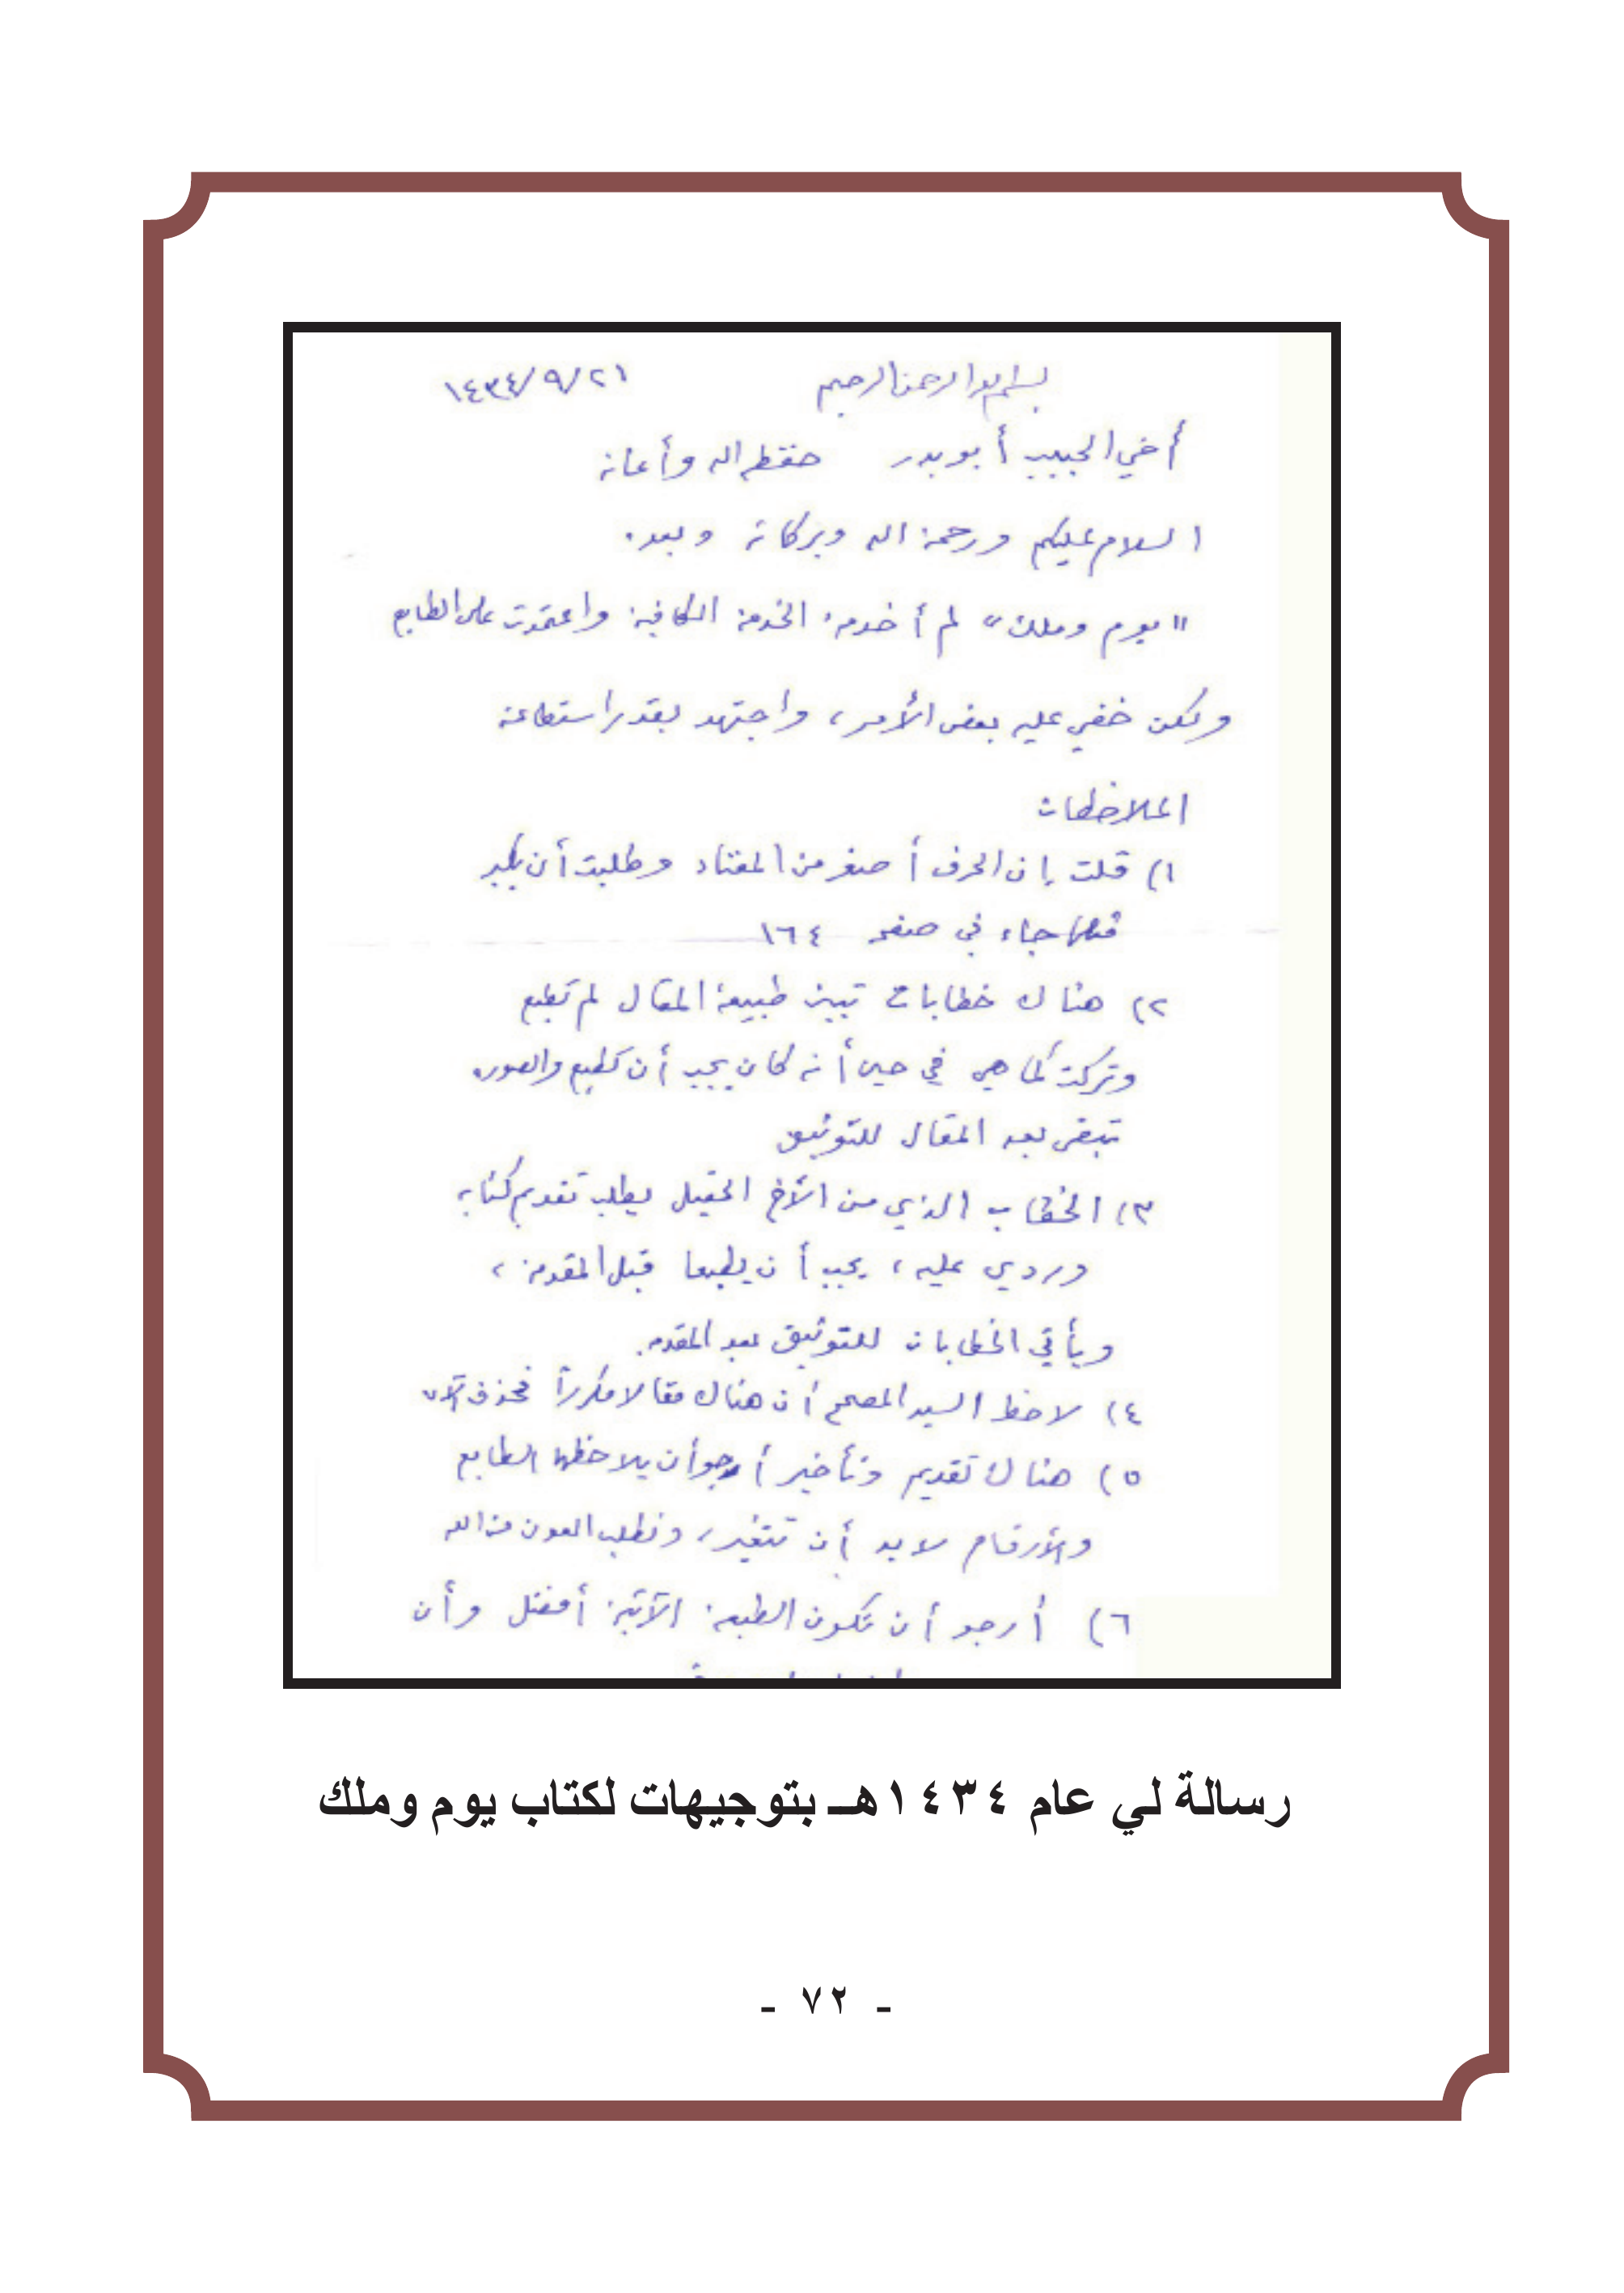 بسم الله الرحمن الرحيم ١٤٣٤/٩/٢١
أخي الحبيب أبو بدر حفظه الله وأعانه
السلام عليكم ورحمة الله وبركاته وبعد.
"يوم وملك" لم أخدمه الخدمة الكافية واعتمدت على الطابع
ولكن خفي عليه بعض الأمر، واجتهد بقدر استطاعته
الملاحظات
١) قلت إن الحرف أصغر من المعتاد وطلبت أن يكبر
جاء في صفحة ١٦٤
٢) هناك خطابات تبين طبيعة المقال لم تطبع
وتركت كما هي في حين أنه كان يجب أن تطبع والصوره
تبقى بعد المقال للتوثيق
٣) الخطاب الذي من الأخ الحقيل يطلب تقديم كتابه
وردي عليه، يجب أن يطبعا قبل المقدمة،
ويأتي الخطابان للتوثيق بعد المقدمه.
٤) لاحظ السيد المصحح أن هناك مقالا مكرراً فحذف
٥) هناك تقديم وتأخير أرجو أن يلاحظها الطابع
والأرقام لا بد أن تتغير، ونطلب العون من الله
٦) أرجو أن تكون الطبعة الآتية أفضل وأن
رسالة لي عام ١٤٣٤هـ بتوجيهات لكتاب يوم وملك
- ٧٢ -